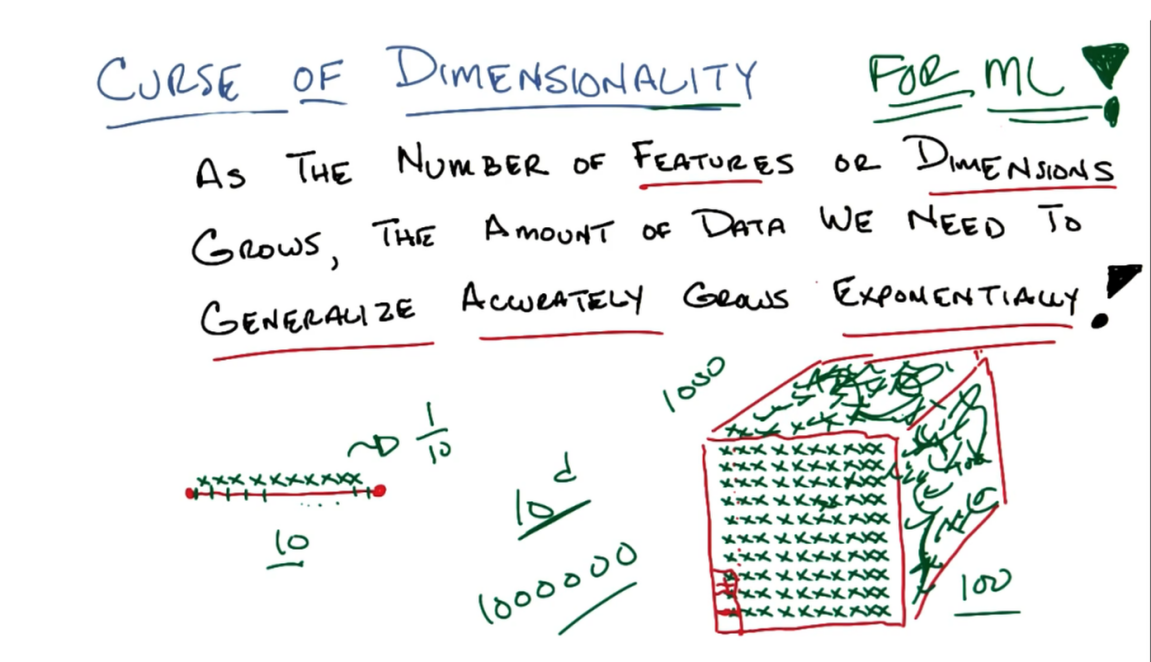 CURSE OF DIMENSIONALITY FOR ML!
AS THE NUMBER OF FEATURES OR DIMENSIONS
GROWS, THE AMOUNT OF DATA WE NEED TO
GENERALIZE ACCURATELY GROWS EXPONENTIALLY!
1000
1/10
10
10^d
1000000
100